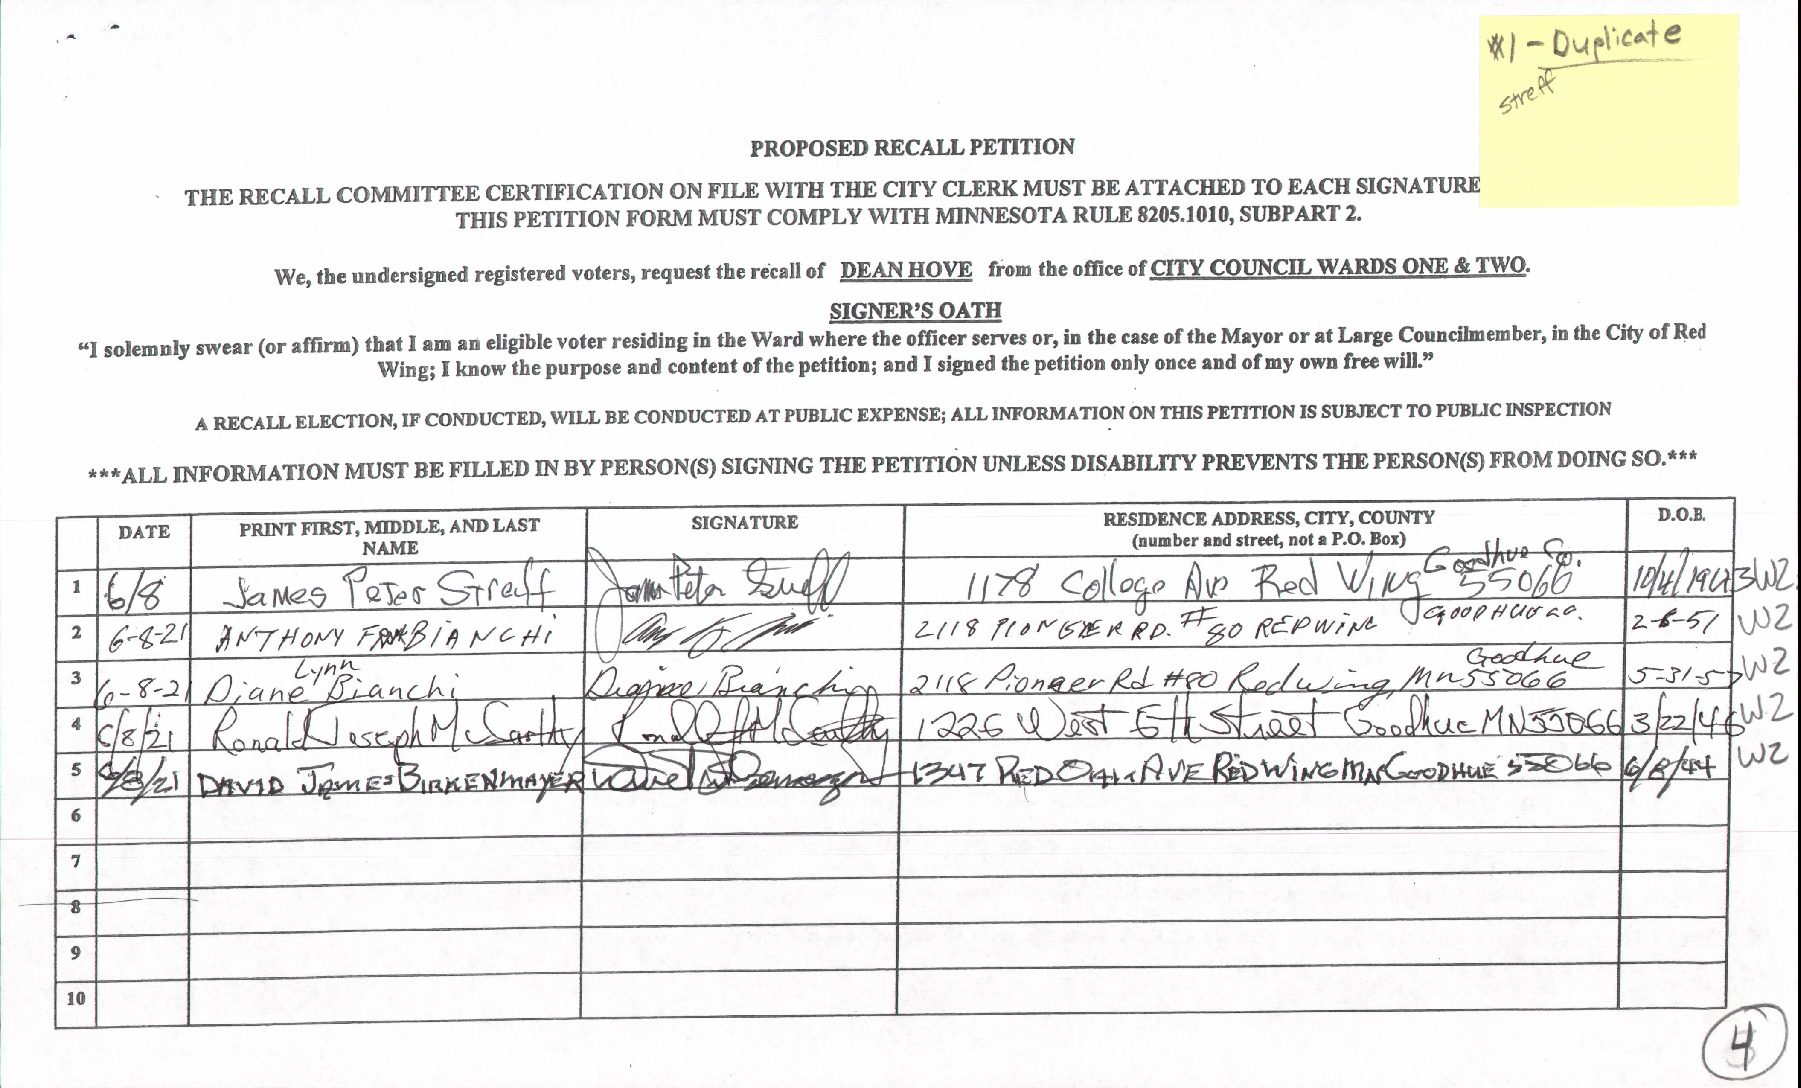 #1 - Duplicate
Streff
PROPOSED RECALL PETITION
THE RECALL COMMITTEE CERTIFICATION ON FILE WITH THE CITY CLERK MUST BE ATTACHED TO EACH SIGNATURE
THIS PETITION FORM MUST COMPLY WITH MINNESOTA RULE 8205.1010, SUBPART 2.
We, the undersigned registered voters, request the recall of DEAN HOVE from the office of CITY COUNCIL WARDS ONE & TWO.
SIGNER'S OATH
"I solemnly swear (or affirm) that I am an eligible voter residing in the Ward where the officer serves or, in the case of the Mayor or at Large Councilmember, in the City of Red
Wing; I know the purpose and content of the petition; and I signed the petition only once and of my own free will."
A RECALL ELECTION, IF CONDUCTED, WILL BE CONDUCTED AT PUBLIC EXPENSE; ALL INFORMATION ON THIS PETITION IS SUBJECT TO PUBLIC INSPECTION
***ALL INFORMATION MUST BE FILLED IN BY PERSON(S) SIGNING THE PETITION UNLESS DISABILITY PREVENTS THE PERSON(S) FROM DOING SO.***
DATE PRINT FIRST, MIDDLE, AND LAST NAME SIGNATURE RESIDENCE ADDRESS, CITY, COUNTY (number and street, not a P.O. Box) D.O.B.
1 6/8 James Peter Streff James Peter Streff 1178 College Av Red Wing Goodhue Co. 55066 10/4/1943 W2
2 6-8-21 ANTHONY BIANCHI 2118 PIONEER RD. #80 RED WING GOODHUE CO. 2-6-51 W2
3 6-8-21 Diane Lynn Bianchi Diane Bianchi 2118 Pioneer Rd #80 Red Wing, MN 55066 Goodhue 5-31-57 W2
4 6/8/21 Ronald Joseph McCarthy Ronald J McCarthy 1226 West 6th Street Goodhue MN 55066 3/22/46 W2
5 6/8/21 DAVID JAMES BIRKENMAYER 1347 RED OAK AVE RED WING MN GOODHUE 55066 6/8/44 W2
6
7
8
9
10
4